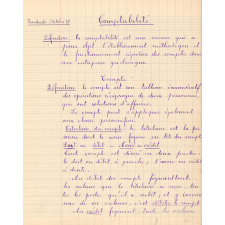 Comptabilité
Définition: la comptabilité est une science qui a
pour objet l'établissement méthodique et
le fonctionnement régulier des comptes dans
une entreprise quelconque
Compte
Définition: le compte est un tableau
des opérations réciproques de deux personnes
qui ont relations d'affaires.
Le compte peut s'appliquer également
aux choses
du compte: le titulaire est la per
sonne dont le nom figure en tête du compte
Doit = débit = Avoir = crédit
Tout compte est divisé en deux parties
le doit ou débit à gauche; l'avoir ou crédit
à droite.
Au débit des compte
les valeurs que le titulaire a
qu'il a
de ces valeurs, c'est débiter le compte
Au crédit figurent tout les valeurs